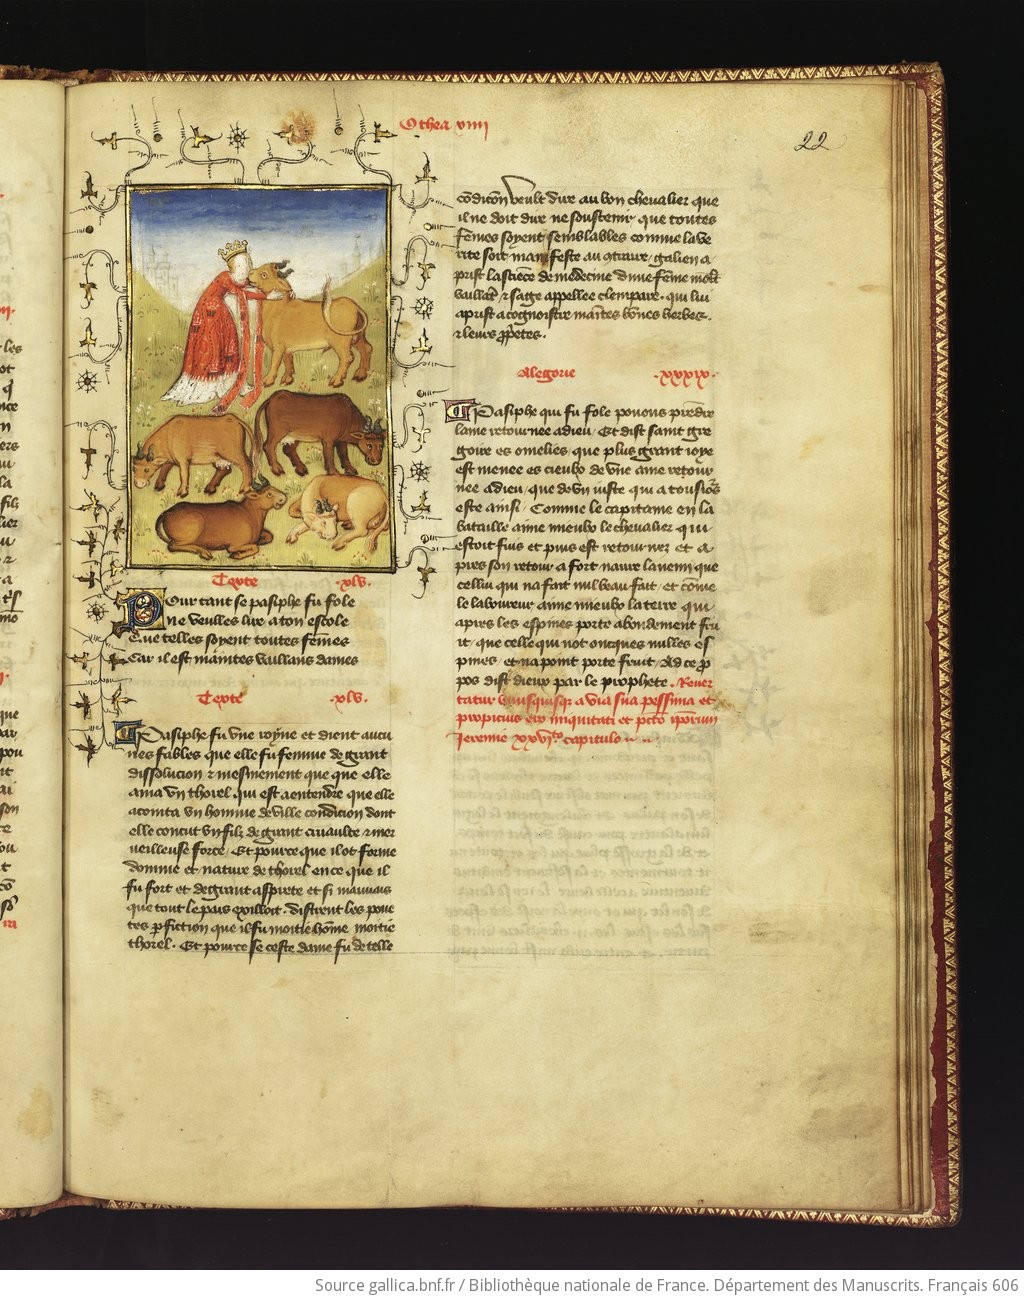 Othea viiii
22
Texte .xlv.
Pour tant se pasiphe fu fole
ne veulles lire a ton escole
Que telles soyent toutes fēmes
Car il est maintes vaillans dames
Texte .xlv.
Pasiphe fu vne royne et dient aucu
nes fables que elle fu femme de grant
dissolucion & mesmement que que elle
ama vn thorel. qui est a entendre que elle
acointa vn homme de ville condicion dont
elle concut vn filz de grant cruaulte & mer
ueilleuse force. Et pource que il ot forme
domme et nature de thorel en ce que il
fu fort et de grant asprete et si mauuais
que tout le pais exilloit. distrent les poue
tes p fiction que il fu moitie hōme moitie
thorel. Et pource se ceste dame fu de telle
cōdicōn veult dire au bon cheualier que
il ne doit dire ne soustenir que toutes
fēmes soyent semblables comme la ve
rite soit manifeste au contraire. galien a
prist la sciēce de medecine dune fēme mōlt
vaillāt & sage appellee clempare. qui lui
aprist a cognoistre maītes bōnes herbes.
& leurs pp̄etes.
Alegorie .xxxix.
Pasiphe qui fu fole pouons prēdre
lame retournee a dieu. Et dist saint gre
goire es omelies que plus grant ioye
est menee es cieulx de vne ame retour
nee a dieu. que de vn iuste qui a tousiōs
este ainsi. Comme le capitaine en la
bataille aime mieulx le cheualier qui
estoit fuis et puis est retournez et a
pres son retour a fort naure lanemi que
cellui qui na fait nul beau fait. et cōme
le laboureur aime mieulx la terre qui
apres les espines porte abondement fru
it. que celle qui not onques nulles es
pines. et na point porte fruit. Ad ce p̄
pos dist dieux par le prophete. Reuer
tatur vnusquisq; a via sua pessima et
propicius ero iniquitati et pctō ip̄orum
Jeremie xxvi°. capitulo
Source gallica.bnf.fr / Bibliothèque nationale de France. Département des Manuscrits. Français 606